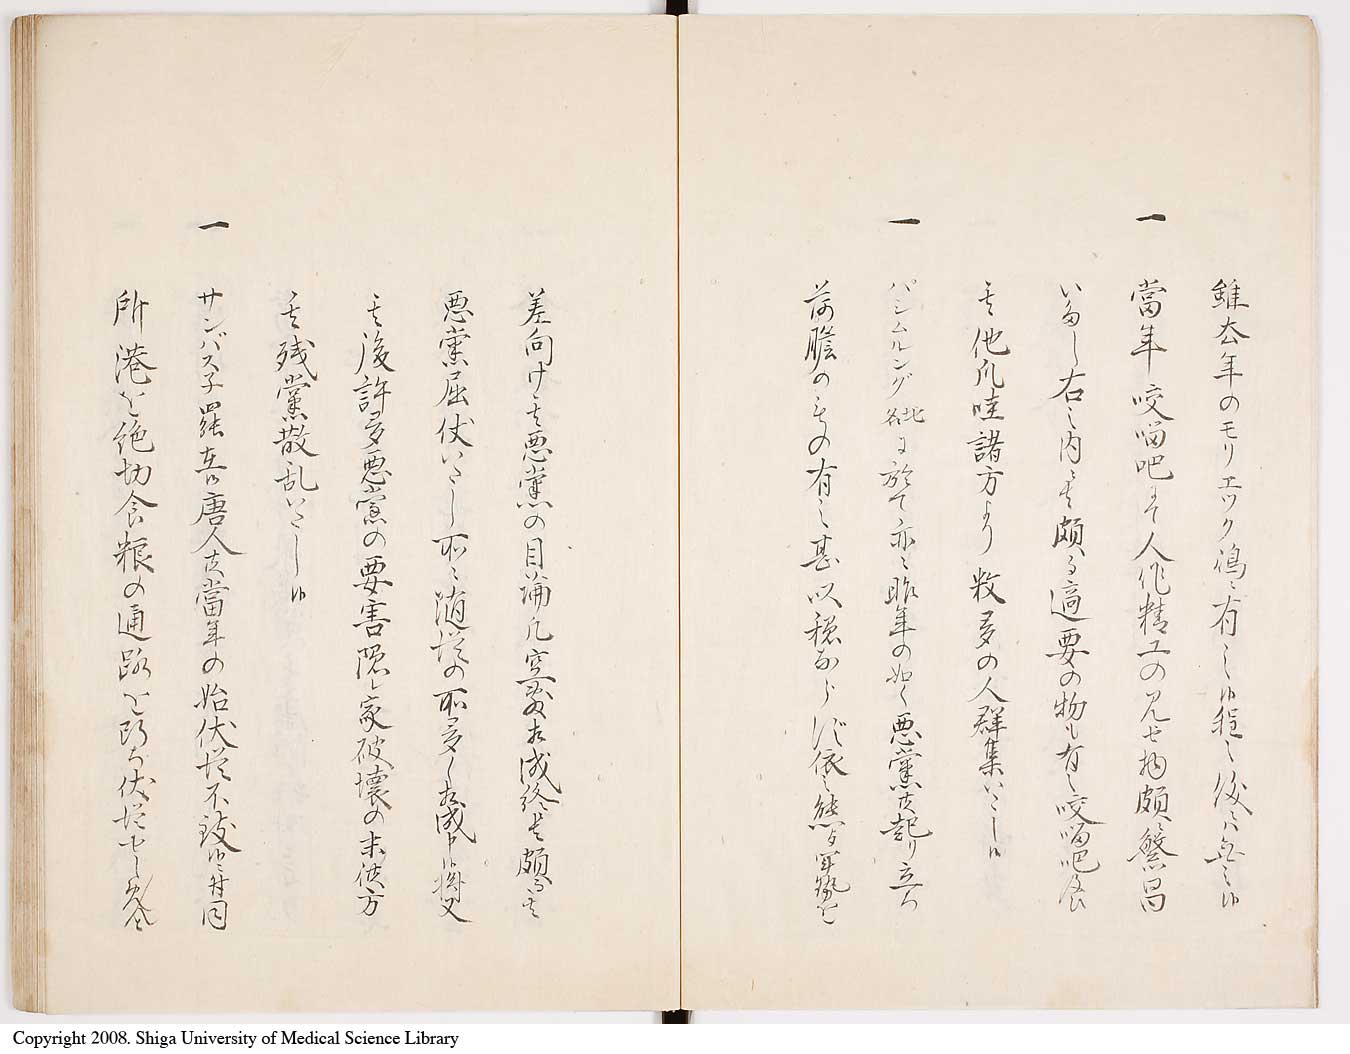 雖去年のモリエツク鴻ニ有之候程之後ハ無之候
一
當年咬𠺕吧ニて人作精工の見せ物頗ル繁昌
いたし右之内ニも頗る適要の物も有之咬𠺕吧及
其他爪哇諸方より数多の人群集いたし候
一
パシムルング地名に於て亦々昨年の如く悪党共起り立候
荷膽のもの有之甚以穏ならず依之態与軍勢を
差向け其悪党の目論凡空敷相成終ニは頗る其
悪黨屈伏いたし所々随従の所多く相成申候将又
其後許多悪黨の要害隠し家破壊の末彼方
其残黨散乱いたし候
一
サンバス子羅在留唐人共當年の始伏従不致候ニ付同
所港を絶切食粮の通路を断ち伏従せしめ候
Copyright 2008. Shiga University of Medical Science Library